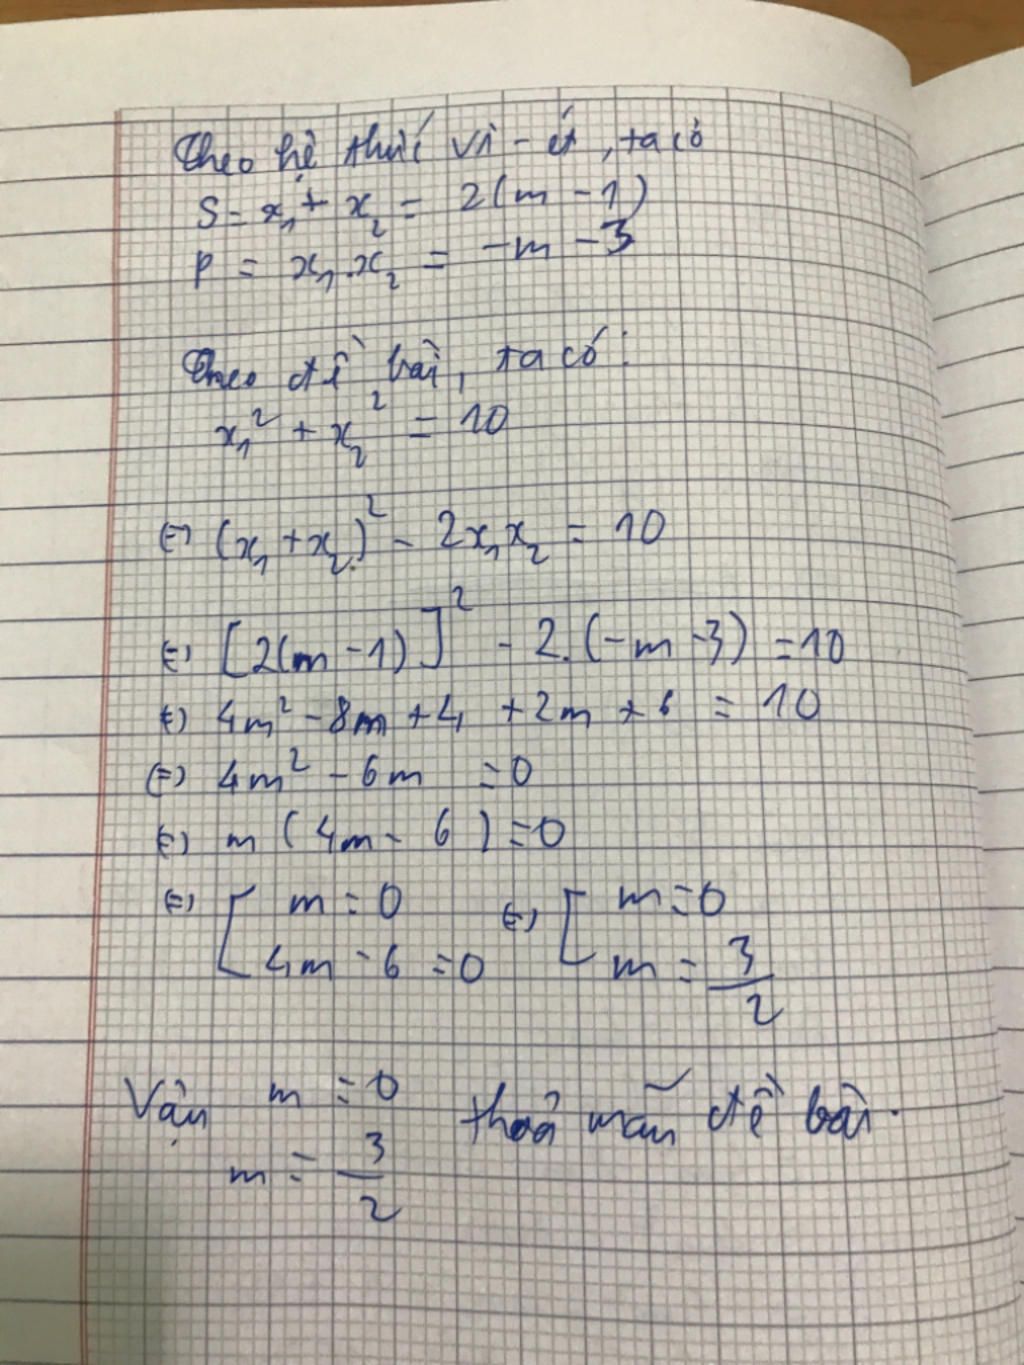 Theo hệ thức Vi-ét, ta có
S = x₁ + x₂ = 2(m - 1)
P = x₁.x₂ = -m - 3
Theo đề bài, ta có:
x₁² + x₂² = 10
(=) (x₁ + x₂)² - 2x₁x₂ = 10
(=) [2(m - 1)]² - 2.(-m - 3) = 10
(=) 4m² - 8m + 4 + 2m + 6 = 10
(=) 4m² - 6m = 0
(=) m(4m - 6) = 0
(=) [ m = 0 (=) [ m = 0
4m - 6 = 0 m = 3/2
Vậy m = 0 thoả mãn đề bài.
m = 3/2